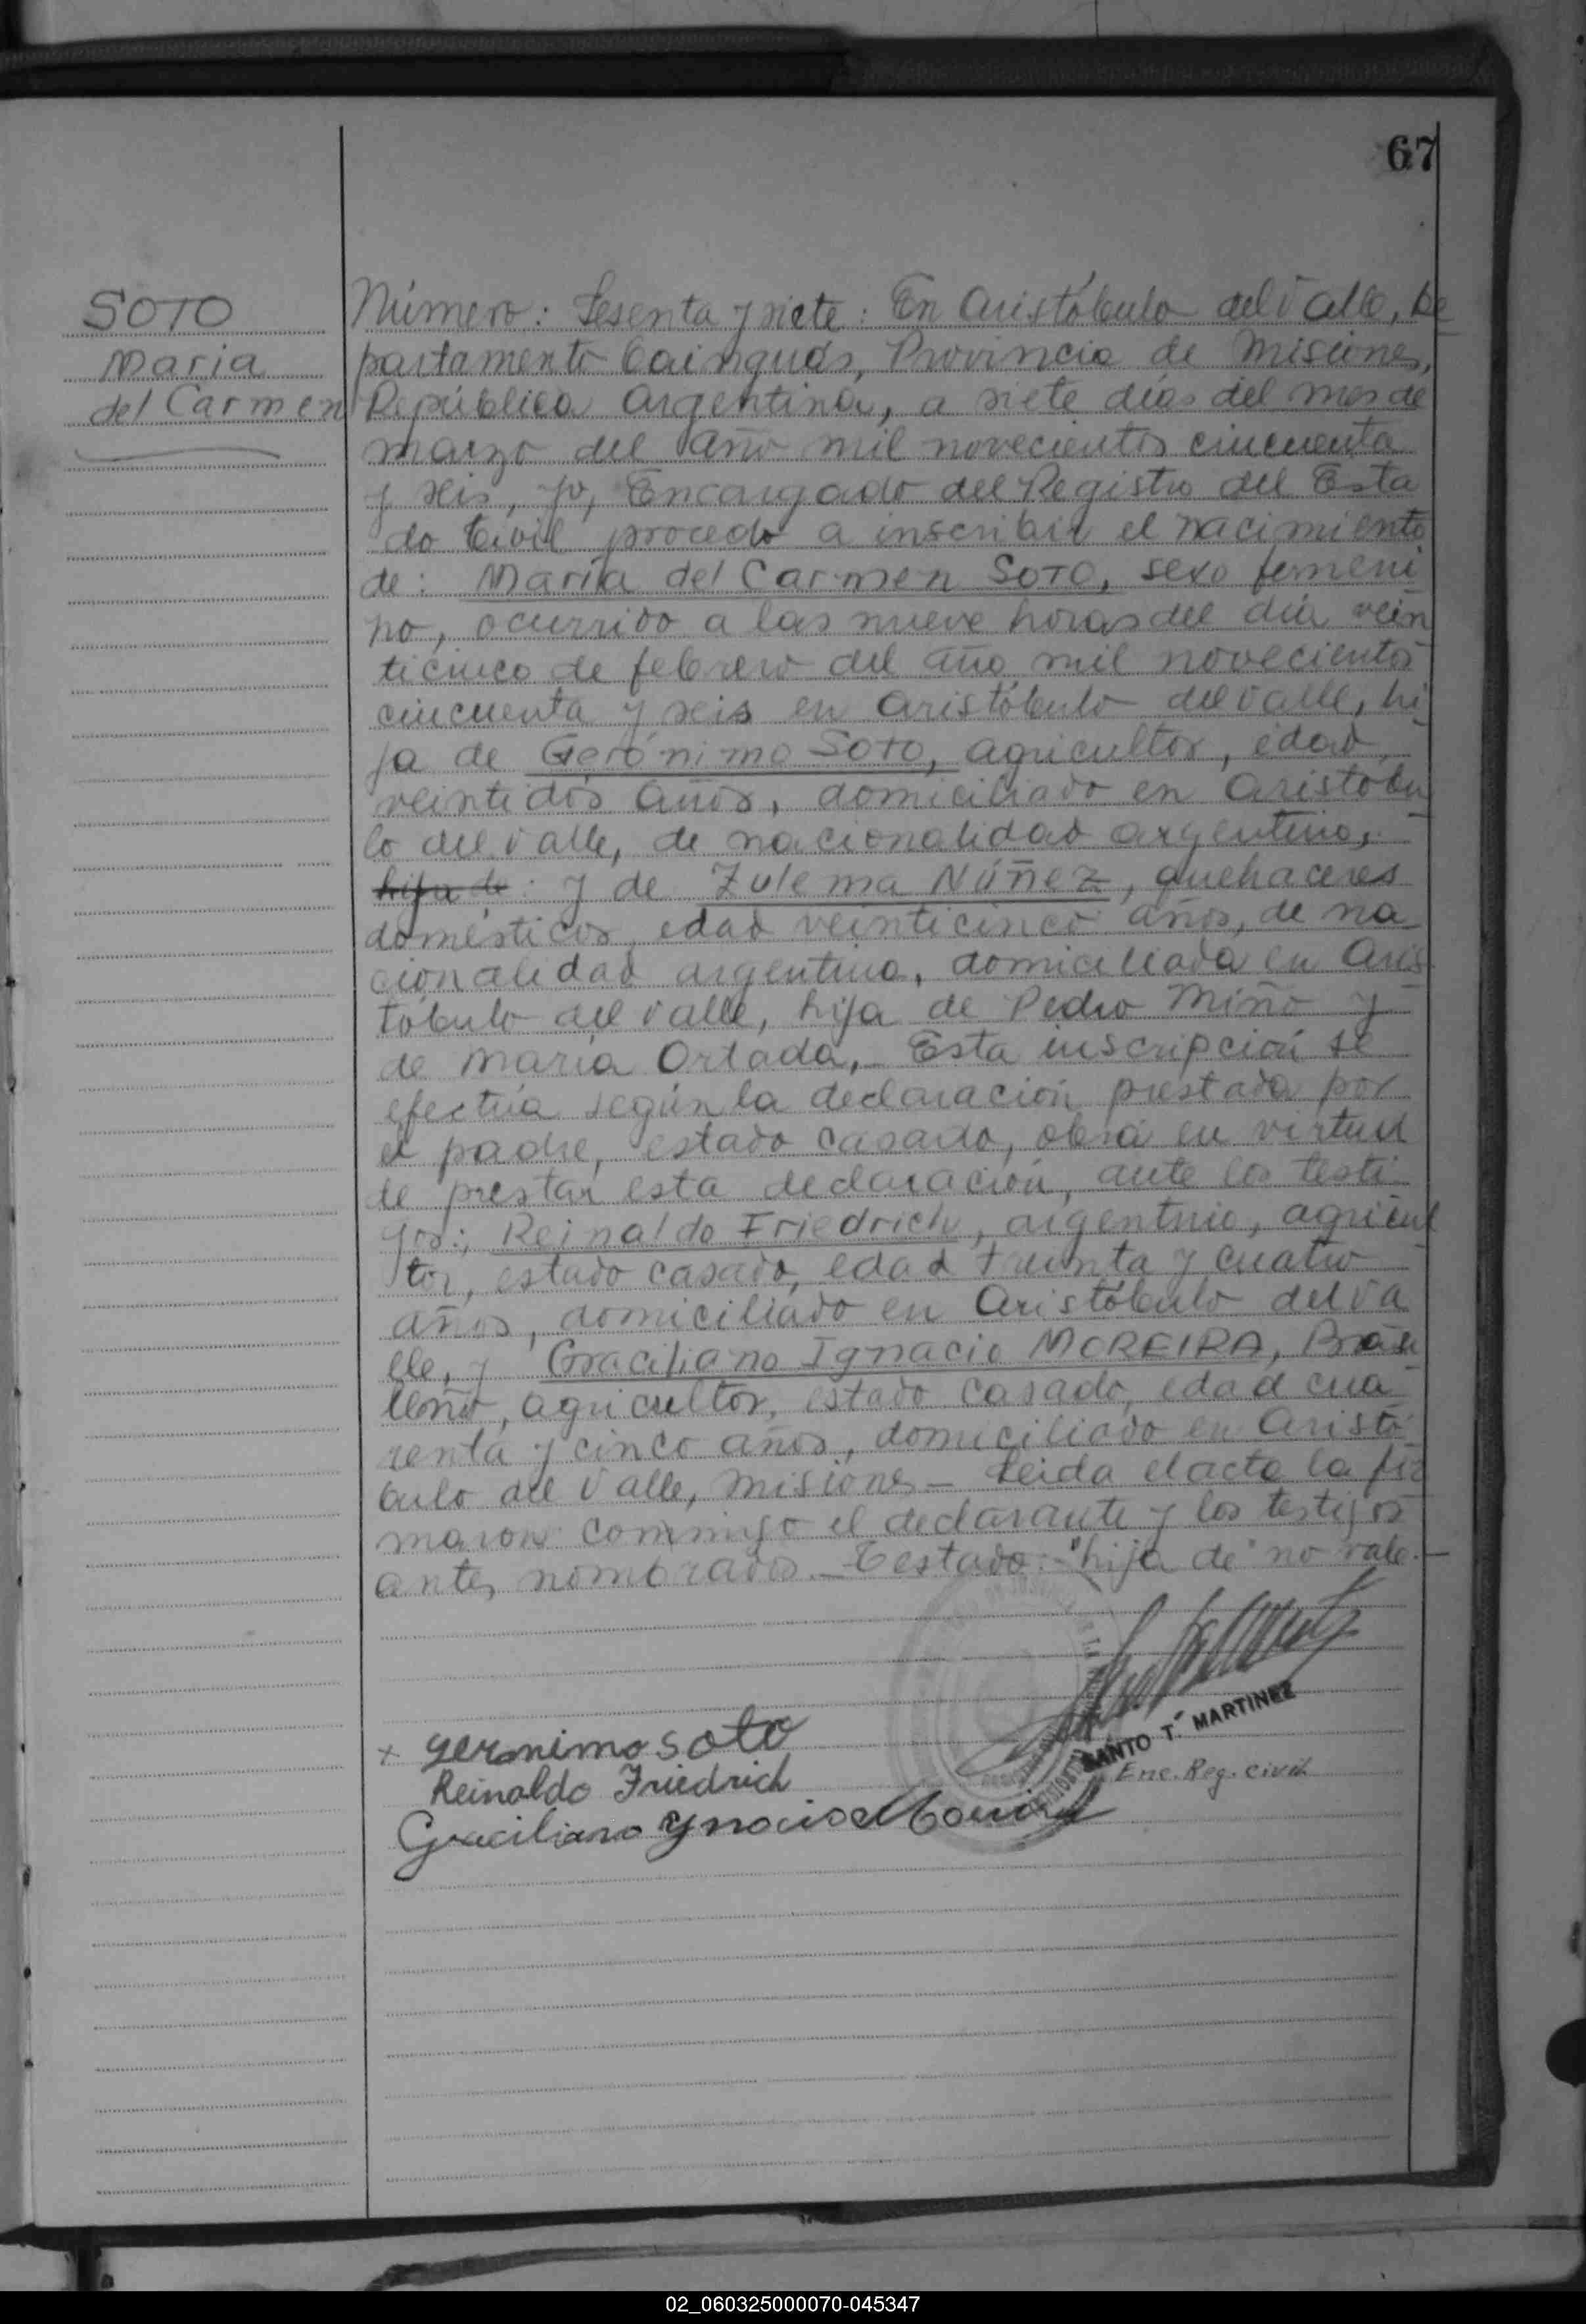 67
SOTO
Maria
del Carmen
Número: Sesenta y siete: En Aristóbulo del Valle, De
partamento Cainguás, Provincia de Misiones,
República Argentina, a siete días del mes de
marzo del año mil novecientos cincuenta
y seis, yo, Encargado del Registro del Esta
do Civil procedo a inscribir el nacimiento
de: María del Carmen SOTO, sexo femeni
no, ocurrido a las nueve horas del día vein
ticinco de febrero del año mil novecientos
cincuenta y seis en Aristóbulo del Valle, hi
ja de Gerónimo SOTO, agricultor, edad
veintidós años, domiciliado en Aristóbu
lo del Valle, de nacionalidad argentino,
hija de: y de Zulema Núñez, quehaceres
domésticos, edad veinticinco años, de na
cionalidad argentina, domiciliada en Aris
tóbulo del Valle, hija de Pedro Miño y
de María Ortada,_ Esta inscripción se
efectúa según la declaración prestada por
el padre, estado casado, obra en virtud
de prestar esta declaración, ante los testi
gos:, Reinaldo Friedrich, argentino, agricul
tor, estado casado, edad treinta y cuatro
años, domiciliado en Aristóbulo del Va
lle, y Graciliano Ignacio MOREIRA, Brasi
leño, agricultor, estado casado, edad cua
renta y cinco años, domiciliado en Aristó
bulo del Valle, Misiones_ Leida el acta la fir
maron conmigo el declarante y los testigos
antes nombrados._Testado:-"hija de" no vale.-
x geronimo soto
SANTO T. MARTINEZ
Enc. Reg. civil
Reinaldo Friedrich
Graciliano Ynacio
02_060325000070-045347